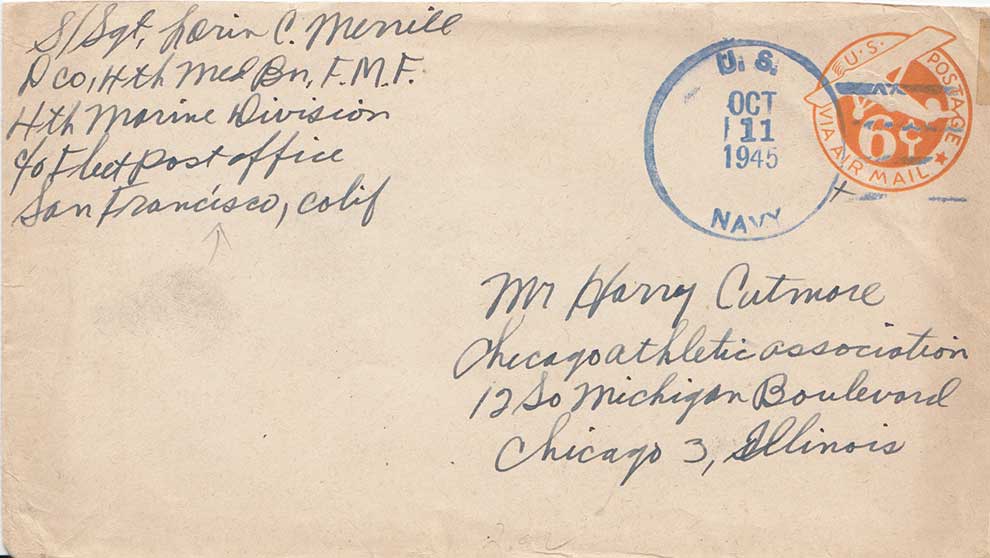 S/Sgt, Lorin C. Merrill
D co, 4th Med Bn, F.M.F.
4th Marine Division
c/o Fleet post office
San Francisco, Colif
U.S.
OCT
11
1945
NAVY
U.S. POSTAGE
6¢
VIA AIR MAIL
Mr Harry Cutmore
Chicago athletic association
12 So Michigan Boulevard
Chicago 3, Illinois